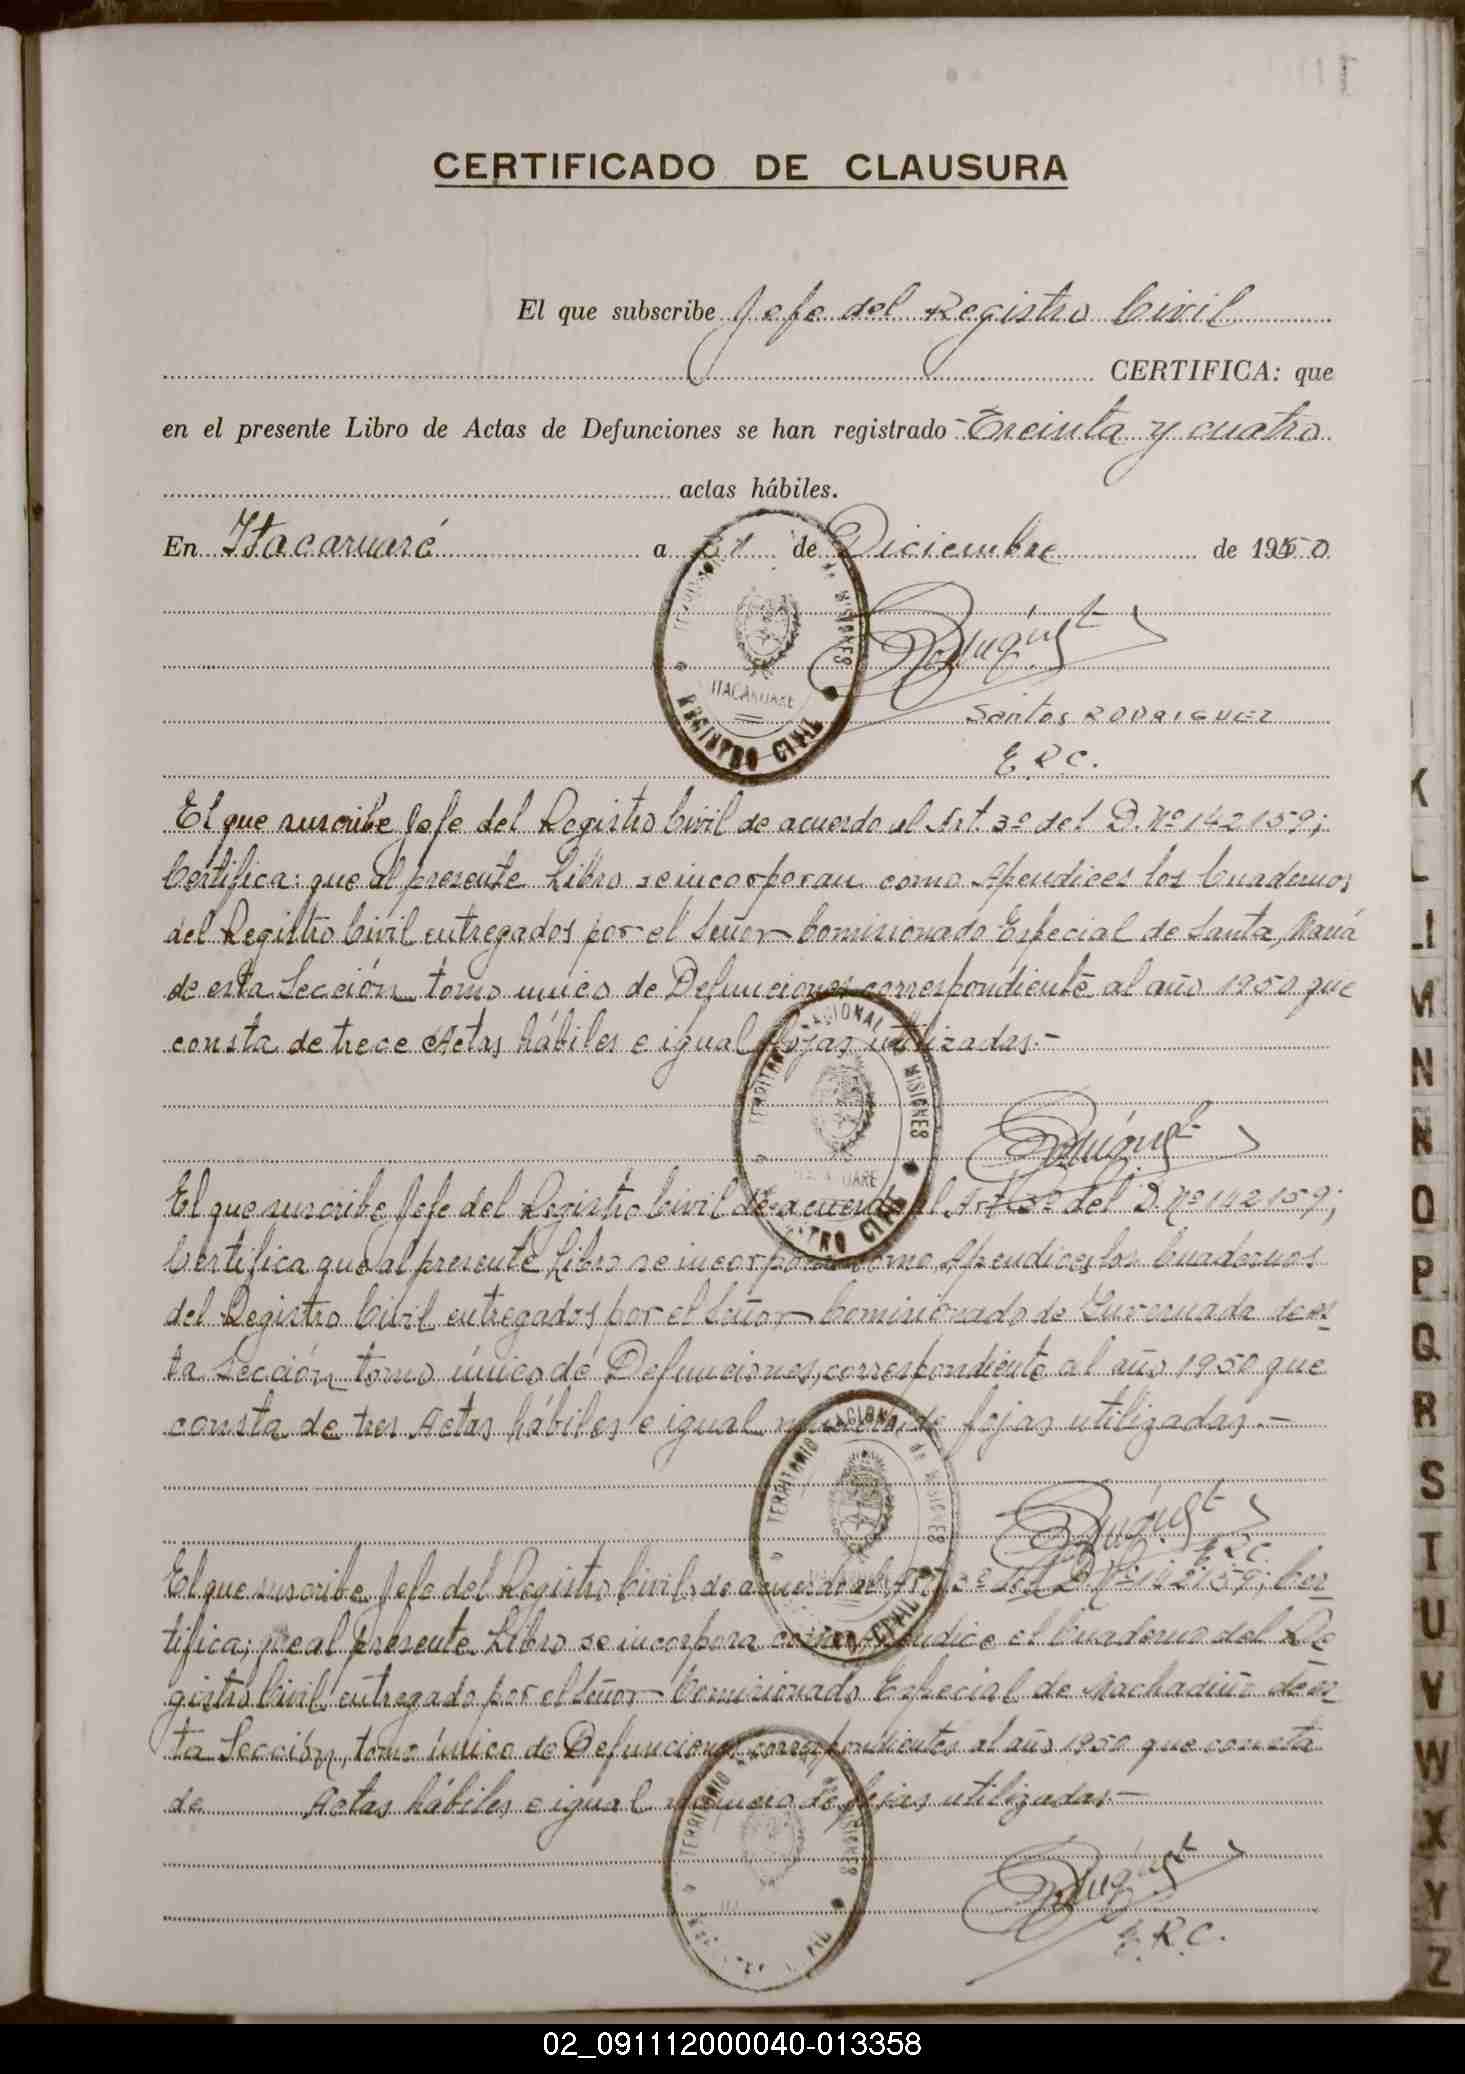 CERTIFICADO DE CLAUSURA
El que subscribe Jefe del Registro Civil
CERTIFICA: que
en el presente Libro de Actas de Defunciones se han registrado Treinta y cuatro
actas hábiles.
En Itacaruaré a 31 de Diciembre de 1950
TERRITORIO de MISIONES
ITACARUARE
REGISTRO CIVIL
Santos RODRIGUEZ
E.R.C.
El que suscribe Jefe del Registro Civil de acuerdo al Art. 3º del D. Nº 142159;
Certifica: que al presente Libro se incorporan como Apendices los Cuadernos
del Registro Civil entregados por el Señor Comisionado Especial de Santa María
de esta Sección tomo unico de Defunciones correspondiente al año 1950 que
consta de trece Actas hábiles e igual fojas utilizadas.-
TERRITORIO NACIONAL MISIONES
El que suscribe Jefe del Registro Civil de acuerdo al Art 3º del D. Nº 142159;
Certifica que al presente Libro se incorporan como Apendices los Cuadernos
del Registro Civil entregados por el Señor Comisionado de Gobernada de es-
ta Sección tomo único de Defunciones, correspondiente al año 1950 que
consta de tres Actas hábiles e igual numero de fojas utilizadas.-
TERRITORIO NACIONAL de MISIONES
E.R.C.
El que suscribe Jefe del Registro Civil, de acuerdo al Art. 3º del D. Nº 142159; Cer-
tifica; que al presente Libro se incorpora como Apendice el Cuaderno del Re-
gistro Civil entregado por el Señor Comisionado Especial de Machadiño de es-
ta Sección, tomo único de Defunciones correspondientes al año 1950 que consta
de Actas hábiles e igual numero de fojas utilizadas.-
TERRITORIO de MISIONES
E.R.C.
K
L
LI
M
N
Ñ
O
P
Q
R
S
T
U
V
W
X
Y
Z
02_091112000040-013358